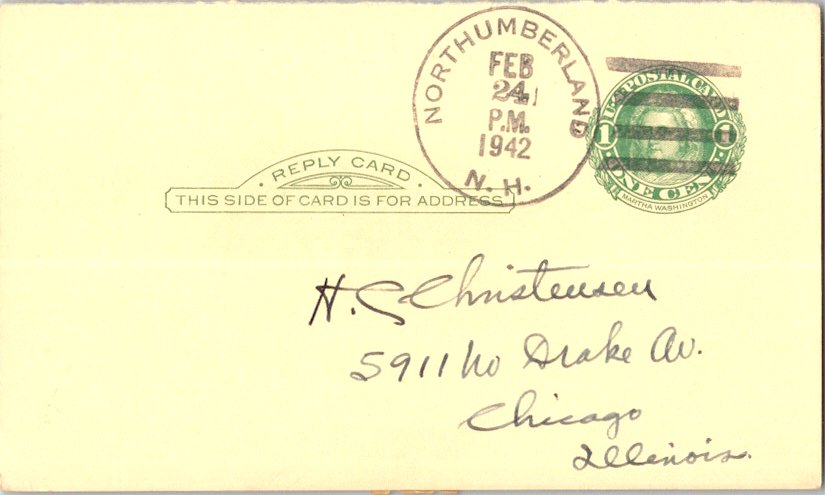 NORTHUMBERLAND
FEB
24
P.M.
1942
N. H.
U.S. POSTAL CARD
1 1
ONE CENT
MARTHA WASHINGTON
REPLY CARD
THIS SIDE OF CARD IS FOR ADDRESS
H. C Christensen
5911 No Drake Av.
Chicago
Illinois.